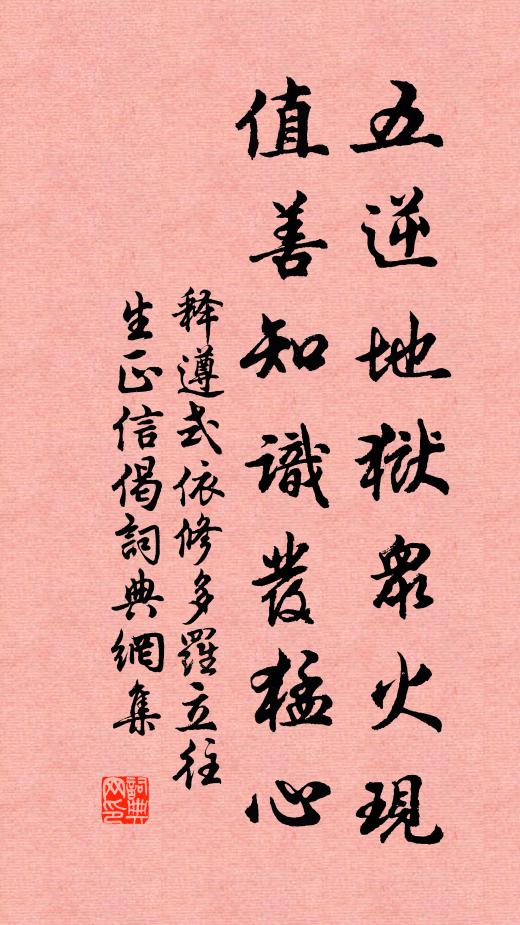 五逆地獄眾火現
值善知識發猛心
释遵式依修多羅立往
生正信偈詞典網集
詞典
网印